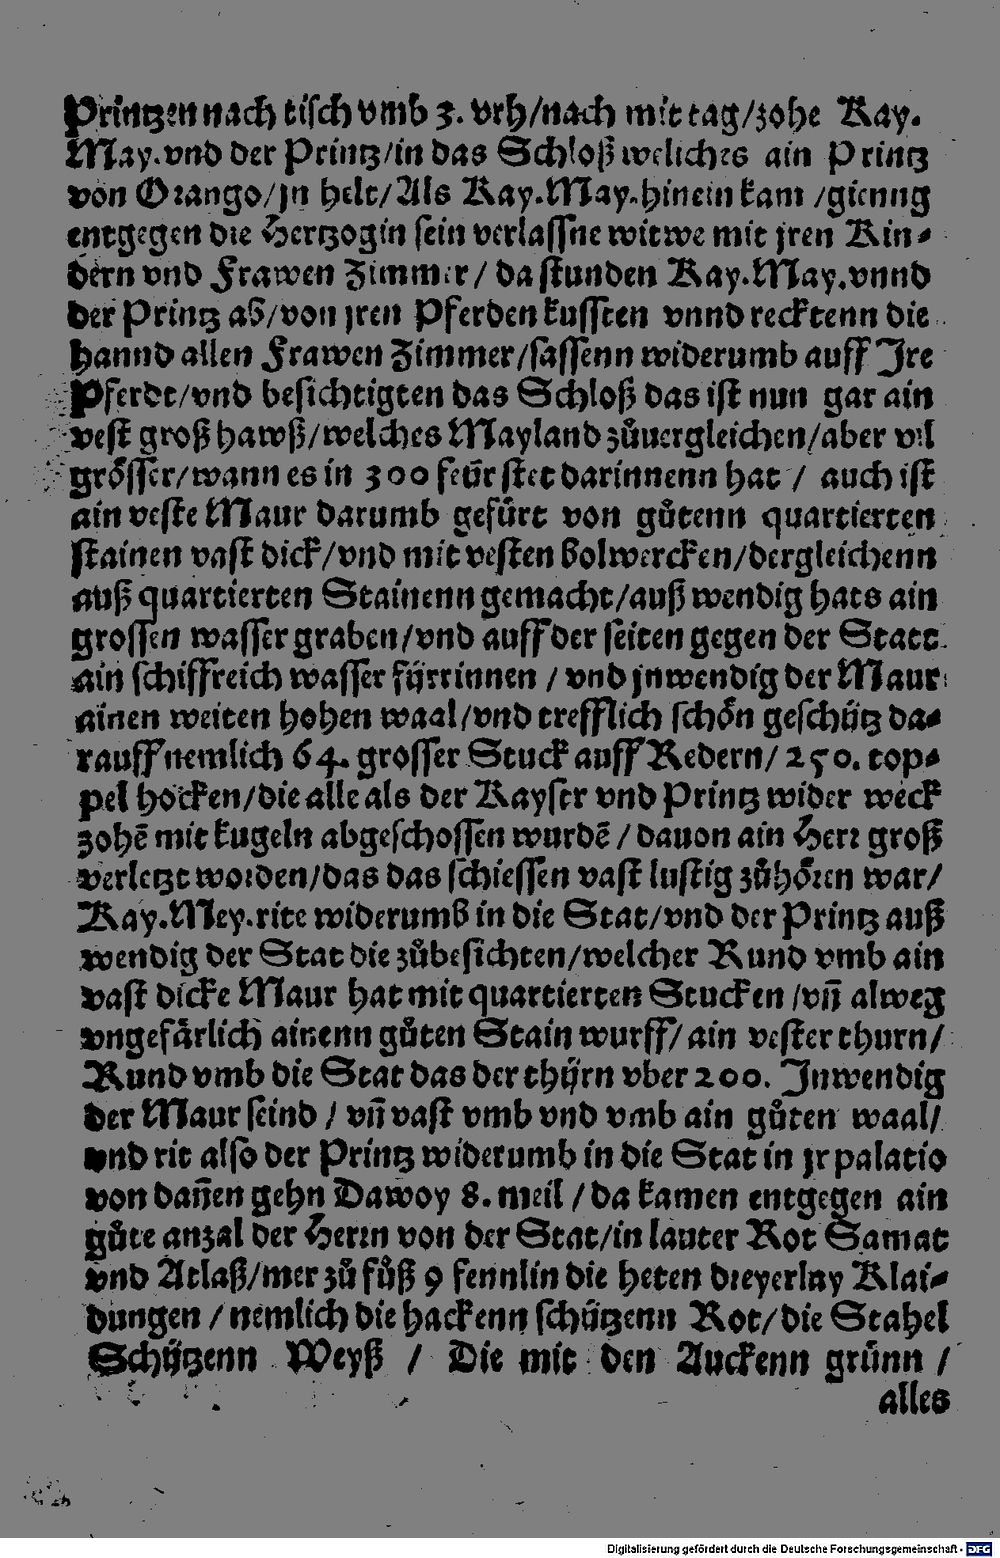 Printzen nach tisch vmb 3. vrh/nach mit tag/zohe Kay.
May.vnd der Printz/in das Schloß weliches ain Printz
von Orango/jn helt/Als Kay.May.hinein kam /gienng
entgegen die Hertzogin sein verlassne witwe mit jren Kin-
dern vnd Frawen Zimmer/ da stunden Kay.May.vnnd
der Printz ab/von jren Pferden kussten vnnd recktenn die
hannd allen Frawen Zimmer/sassenn widerumb auff Jre
Pferdt/vnd besichtigten das Schloß das ist nun gar ain
vest groß hawß/welches Mayland zůuergleichen/aber vil
grösser/wann es in 300 feür stet darinnenn hat / auch ist
ain veste Maur darumb gefürt von gůtenn quartierten
stainen vast dick/vnd mit vesten bolwercken/dergleichenn
auß quartierten Stainenn gemacht/auß wendig hats ain
grossen wasser graben/vnd auff der seiten gegen der Statt
ain schiffreich wasser fürrinnen / vnd jnwendig der Maur
ainen weiten hohen waal/vnd trefflich schön geschütz da-
rauff nemlich 64. grosser Stuck auff Redern/ 250. top-
pel hocken/die alle als der Kayser vnd Printz wider weck
zohē mit kugeln abgeschossen wurdē / dauon ain Herr groß
verletzt worden/das das schiessen vast lustig zůhören war/
Kay.Mey.rite widerumb in die Stat/vnd der Printz auß
wendig der Stat die zůbesichten/welcher Rund vmb ain
vast dicke Maur hat mit quartierten Stucken /vñ alweg
vngefärlich ainenn gůten Stain wurff/ ain vester thurn/
Rund vmb die Stat das der thürn vber 200. Jnwendig
der Maur seind / vñ vast vmb vnd vmb ain gůten waal/
vnd rit also der Printz widerumb in die Stat in jr palatio
von dañen gehn Dawoy 8. meil / da kamen entgegen ain
gůte anzal der Herrn von der Stat/in lauter Rot Samat
vnd Atlaß/mer zů fůß 9 fennlin die heten dreyerlay Klai-
dungen / nemlich die hackenn schützenn Rot/die Stahel
Schützenn Weyß / Die mit den Auckenn grünn /
alles
Digitalisierung gefördert durch die Deutsche Forschungsgemeinschaft - DFG